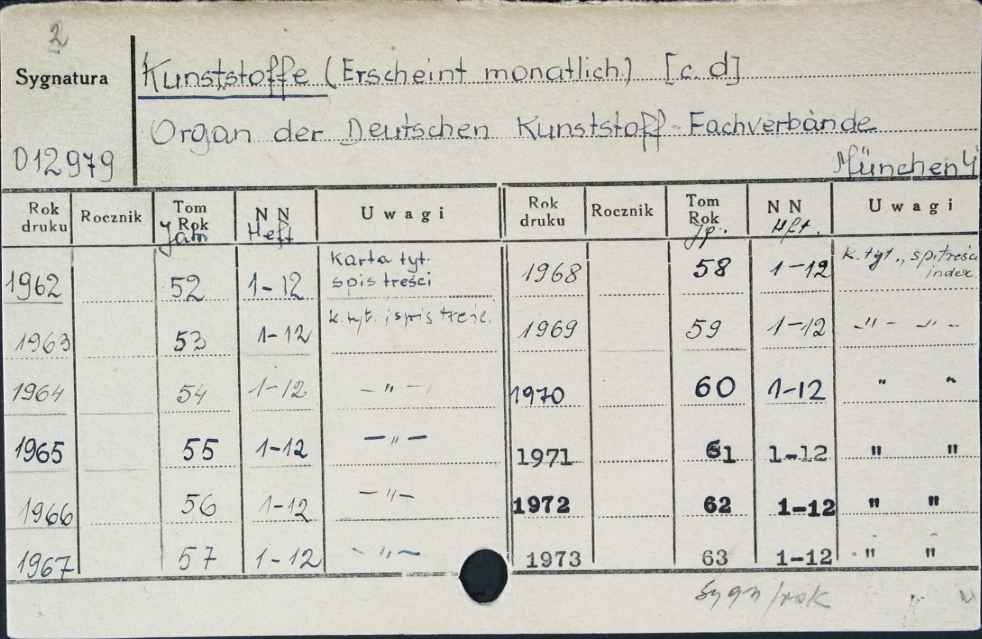 2
Sygnatura
Kunststoffe (Erscheint monatlich) [c. d]
Organ der Deutschen Kunststoff-Fachverbände
D12979
München
Rok druku Rocznik Tom Rok NN Uwagi Rok druku Rocznik Tom Rok NN Uwagi
Heft Jg. Hft.
1962 52 1-12 Karta tyt. spis treści 1968 58 1-12 k. tyt., sp. treści index
1963 53 1-12 k. tyt. i spis treśc. 1969 59 1-12 -"- -"-
1964 54 1-12 -"- 1970 60 1-12 " "
1965 55 1-12 -"- 1971 61 1-12 " "
1966 56 1-12 -"- 1972 62 1-12 " "
1967 57 1-12 -"- 1973 63 1-12 " "
Sygn/rok